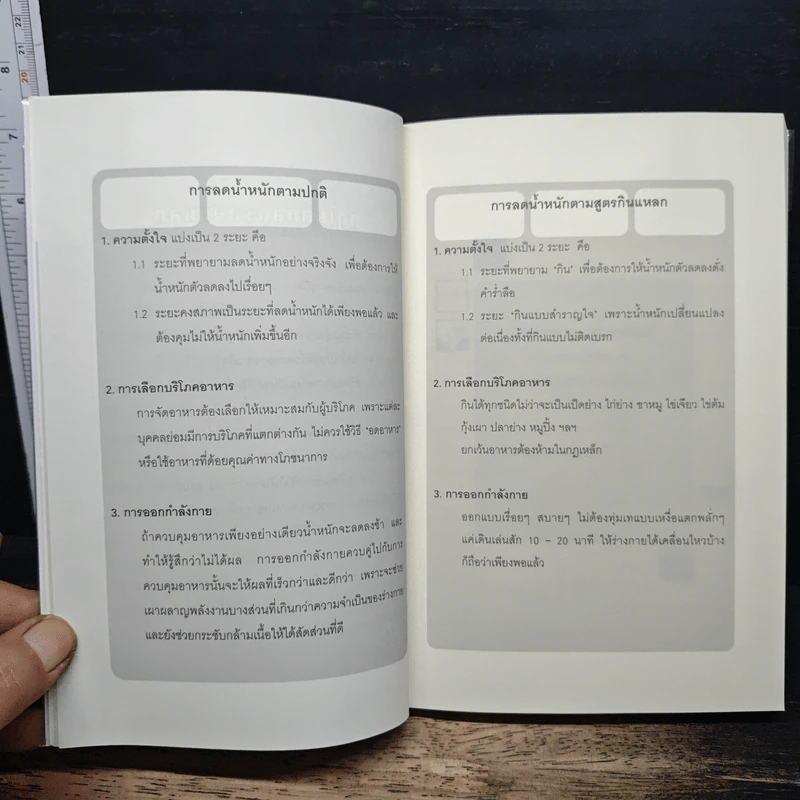 การลดน้ำหนักตามปกติ
1. ความตั้งใจ แบ่งเป็น 2 ระยะ คือ
1.1 ระยะที่พยายามลดน้ำหนักอย่างจริงจัง เพื่อต้องการให้
น้ำหนักตัวลดลงไปเรื่อยๆ
1.2 ระยะคงสภาพเป็นระยะที่ลดน้ำหนักได้เพียงพอแล้ว และ
ต้องคุมไม่ให้น้ำหนักเพิ่มขึ้นอีก
2. การเลือกบริโภคอาหาร
การจัดอาหารต้องเลือกให้เหมาะสมกับผู้บริโภค เพราะแต่ละ
บุคคลย่อมมีการบริโภคที่แตกต่างกัน ไม่ควรใช้วิธี "อดอาหาร"
หรือใช้อาหารที่ด้อยคุณค่าทางโภชนาการ
3. การออกกำลังกาย
ถ้าควบคุมอาหารเพียงอย่างเดียวน้ำหนักจะลดลงช้า และ
ทำให้รู้สึกว่าไม่ได้ผล การออกกำลังกายควบคู่ไปกับการ
ควบคุมอาหารนั้นจะให้ผลที่เร็วกว่าและดีกว่า เพราะจะช่วย
เผาผลาญพลังงานบางส่วนที่เกินกว่าความจำเป็นของร่างกาย
และยังช่วยกระชับกล้ามเนื้อให้ได้สัดส่วนที่ดี
การลดน้ำหนักตามสูตรกินแหลก
1. ความตั้งใจ แบ่งเป็น 2 ระยะ คือ
1.1 ระยะที่พยายาม "กิน" เพื่อต้องการให้น้ำหนักตัวลดลงดั่ง
คำร่ำลือ
1.2 ระยะ "กินแบบสำราญใจ" เพราะน้ำหนักเปลี่ยนแปลง
ต่อเนื่องทั้งที่กินแบบไม่ติดเบรก
2. การเลือกบริโภคอาหาร
กินได้ทุกชนิดไม่ว่าจะเป็นเป็ดย่าง ไก่ย่าง ขาหมู ไข่เจียว ไข่ต้ม
กุ้งเผา ปลาย่าง หมูปิ้ง ฯลฯ
ยกเว้นอาหารต้องห้ามในกฎเหล็ก
3. การออกกำลังกาย
ออกแบบเรื่อยๆ สบายๆ ไม่ต้องทุ่มเทแบบเหงื่อแตกพลั่กๆ
แค่เดินเล่นสัก 10 – 20 นาที ให้ร่างกายได้เคลื่อนไหวบ้าง
ก็ถือว่าเพียงพอแล้ว